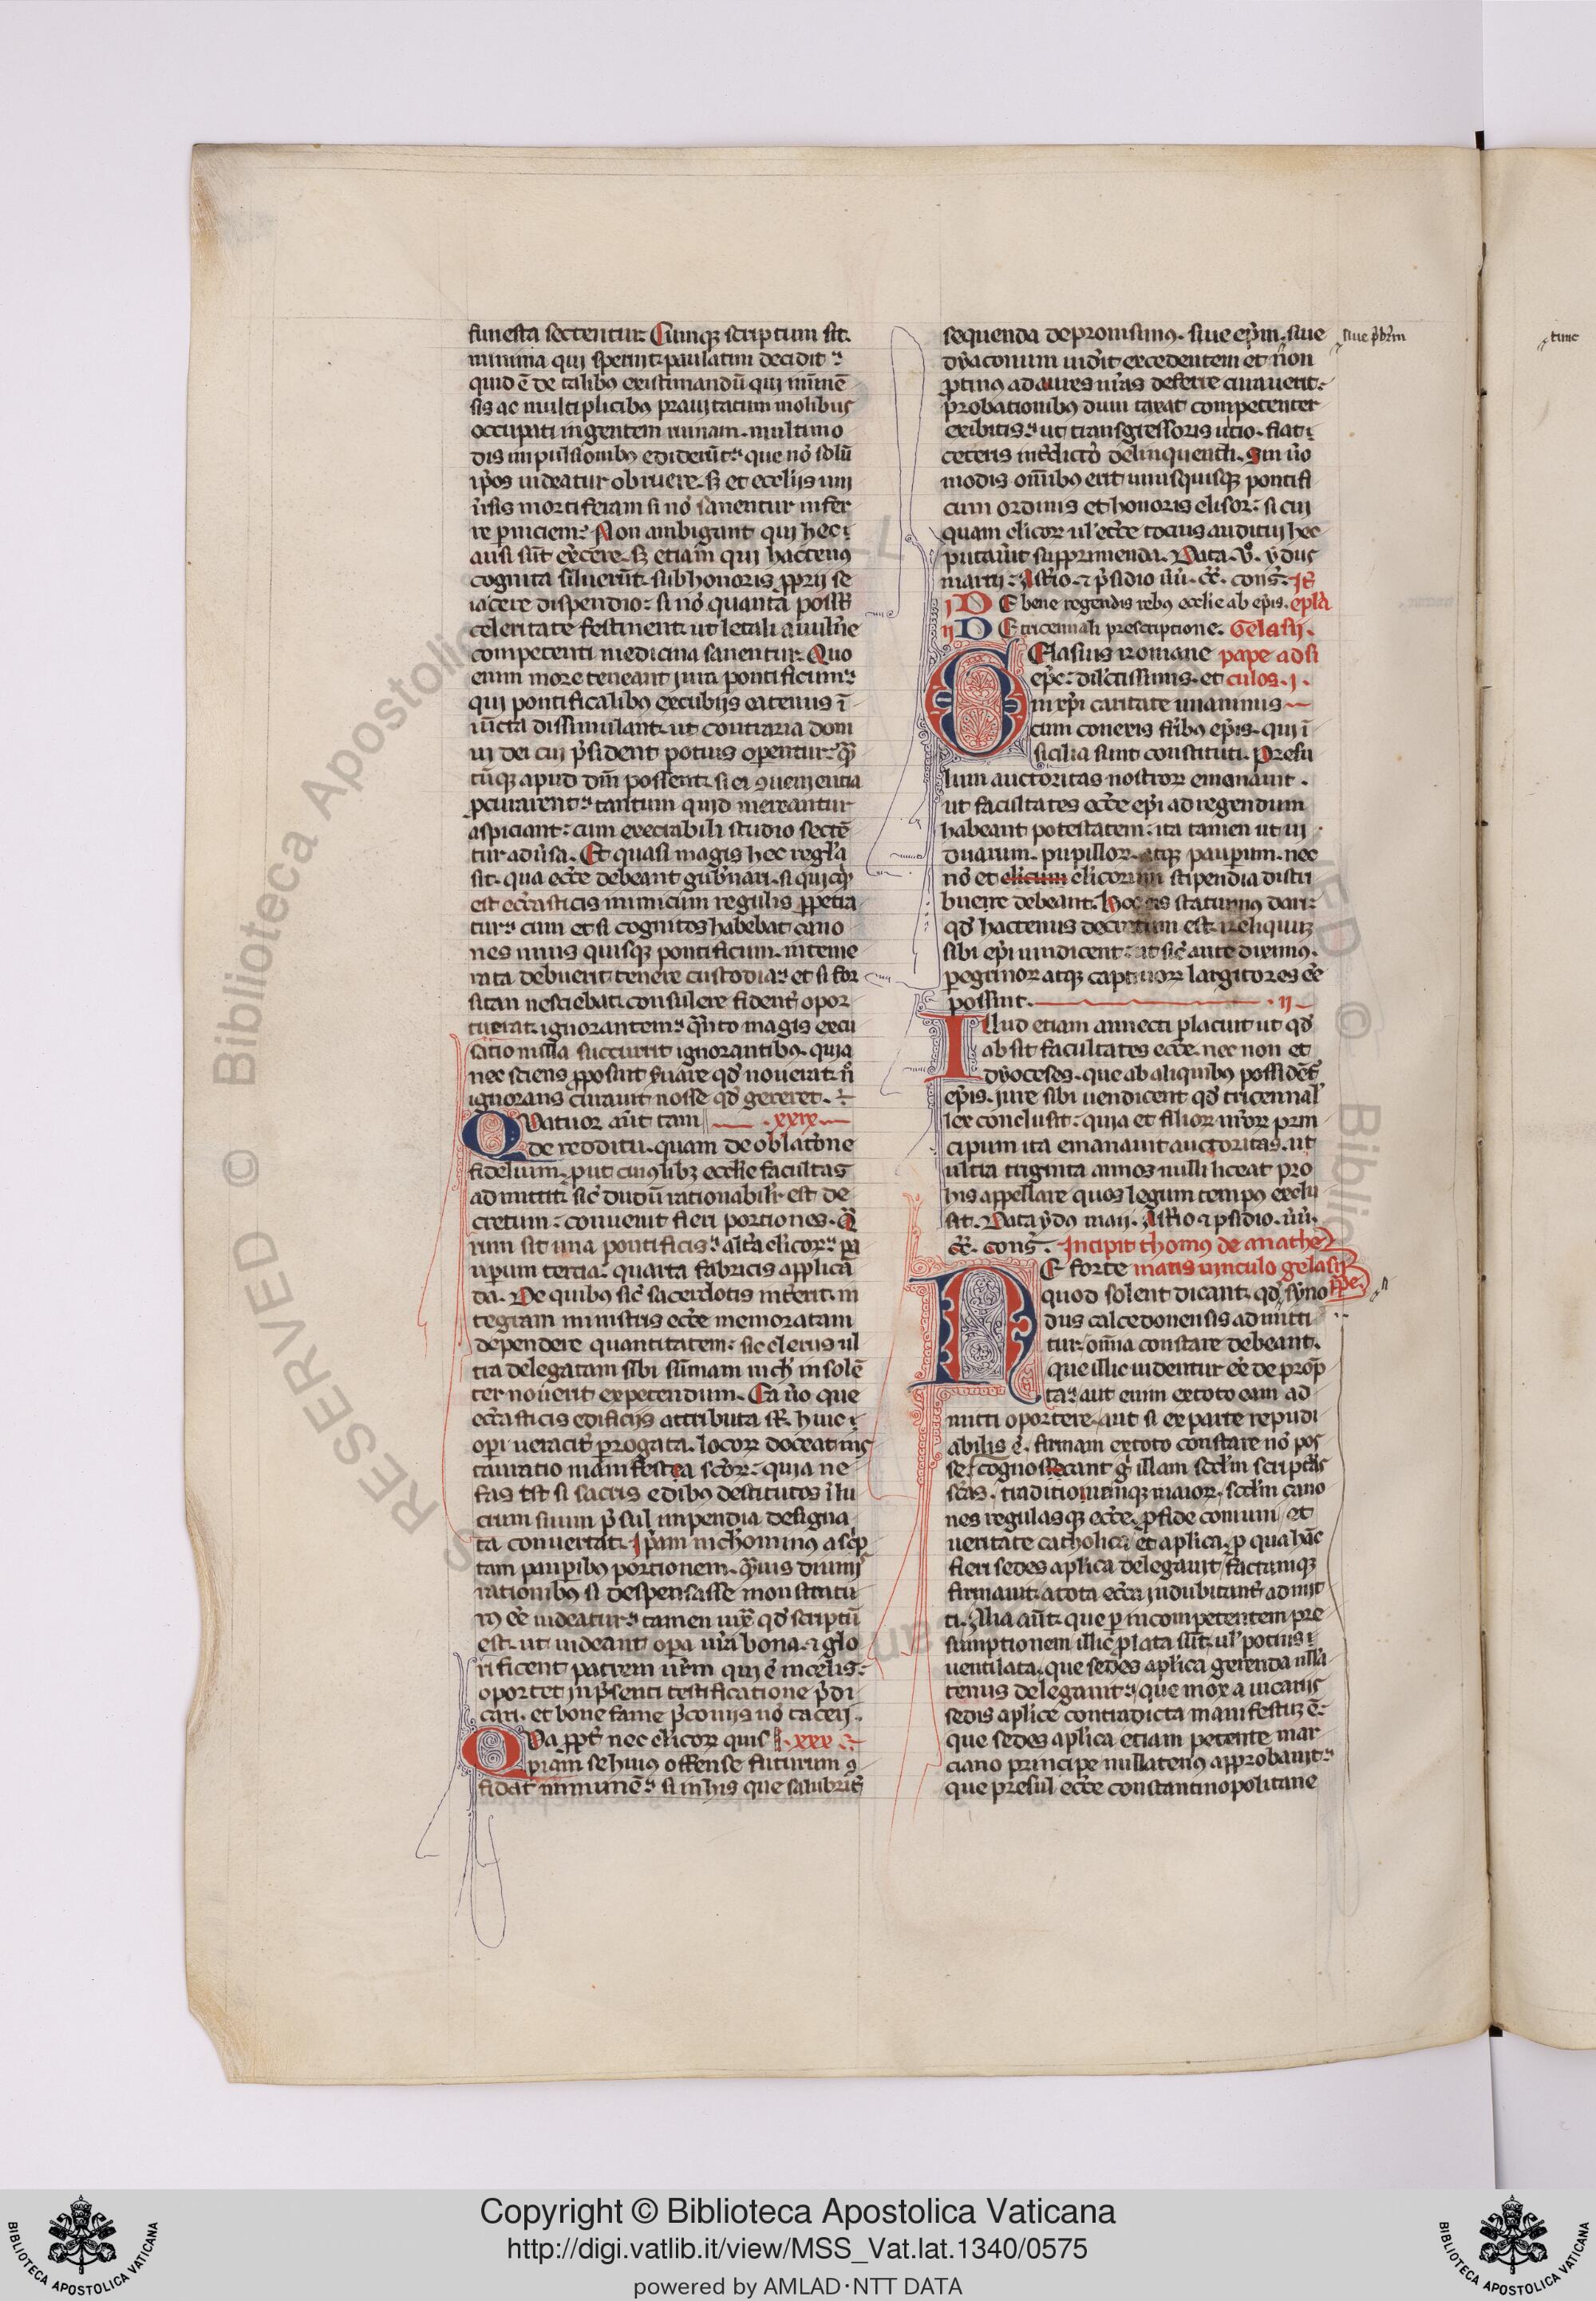 funesta sectentur. Cumqꝫ scriptum sit.
minima qui spernit paulatim decidit
quid ē de talibꝰ existimandū qui īmē
sis ac multiplicibꝰ prauitatum molibus
occupati ingentem ruinam. multimo
dis impulsionibꝰ ediderūt que nō solū
ip̄os uideatur obruere. sꝫ et eccl̄ijs uni
ūsis mortiferam si nō sanentur infer
re ꝑniciem. Non ambigant qui hec
ausi sūt exc̄ere. sꝫ etiam qui hactenꝰ
cognita siluerūt. sub honoris ꝓprij se
iacere dispendio. si nō quanta poss̄t
celeritate festinent. ut letali a uuln̄e
competenti medicina sanentur. Quo
enim more teneant iura pontificum
qui pontificalibꝰ excubijs eatenus ī
iūcta dissimulant. ut contraria dom
ui dei cui p̄sident potius operentur. qꝫ̄
tūqꝫ apud dm̄ possent. si ei ꝯuenientia
ꝓcurarent. tantum quid mereantur
aspiciant. cum execrabili studio sectē
tur aduīsa. Et quasi magis hec regl̄a
sit. qua ecc̄e debeant gub̄nari. si quicq̄
est ecc̄asticis inimicum regulis ꝑpetra
tur. cum et si cognitos habebat cano
nes unus quisqꝫ pontificum. inteme
rata debuerit tenere custodia. et si for
sitan nesciebat. consulere fident̄ opor
tuerat ignorantem. q̄nto magis excu
satio nulla succurrit ignorantibꝰ. quia
nec sciens ꝓposuit ƒuare qd̄ nouerat. n̄
ignorans curauit nosse qd̄ gereret.
QVatuor aūt tam .xxix.
de redditu. quam de oblat̄one
fidelium. ꝓut cuiꝰlibꝫ eccl̄ie facultas
admittit. sic̄ dudū rationabilr̄ est de
cretum. conuenit fieri portiones. Qr̄
rum sit una pontificis. alt̄a clicoꝝ. pa
uꝑum tertia. quarta fabricis applicā
da. De quibꝰ sic̄ sacerdotis int̄erit in
tegram ministris ecc̄e memoratam
dependere quantitatem. sic clerus ul
tra delegatam sibi sūmam nich̄ insolē
ter nouerit expetendum. Ea ūo que
ecc̄asticis edificijs attributa st̄. huic
operi ueracit̄ ꝑrogata. locoꝝ doceat ins
tauratio manifesta sc̄oꝝ. quia ne
fas est si sacris edibꝰ destitutos ī lu
crum suum p̄sul impendia designa
ta conuertat. Ip̄am nich̄ominus ascꝑ
tam pauꝑibꝰ portionem. q̄uis diuinis
rationibꝰ si dispensasse monstratu
rꝰ eē uideatur. tamen iux̄ qd̄ scriptū
est. ut uideant oꝑa ur̄a bona. ⁊ glo
rificent patrem ur̄m qui ē in celis.
oportet in p̄senti testificatione p̄di
cari. et bone fame p̄conijs nō taceri.
QVa ꝓpt̄ nec clicoꝝ quis .xxx.
piam se huius offense futurum ꝯ
fidat inmunē. si in his que salubrit̄
sequenda depromsimus. siue ep̄m. siue
siue p̄br̄m
dẏaconum uid̄it excedentem et non
ꝓtinus ad aures nr̄as deferre curauerit.
probationibꝰ dum taxat competenter
exibitis. ut transgressoris ultio. fiat
ceteris int̄dicto delinquendi. Sin ūo
modis om̄ibꝰ erit unusquisqꝫ pontifi
cum ordinis et honoris elisor. si cui
quam clicoꝝ ul̄ ecc̄e tocius auditui hec
putauit supprimenda. Data .v. ẏdus
martij. Ast̄io. ⁊ p̄sidio ūū. cc̄. cons̄.
j DE bene regendis rebꝰ eccl̄ie ab ep̄is. epl̄a
ij DE tricennali prescriptione. Gelasij.
GElasius romane pape ad si
ep̄c. dil̄ctissimis. et culos. j.
in xp̄i caritate unanimis
cum coneris fr̄ibꝰ ep̄is. qui ī
sicilia sunt constituti. Presu
lum auctoritas nostroꝝ emanauit.
ut facultates ecc̄e ep̄i ad regendum
habeant potestatem. ita tamen ut ui
duarum. pupilloꝝ. atqꝫ pauꝑum. nec
nō et clicum clicorum stipendia distri
buere debeant. Hoc eis statuimus dari.
qd̄ hactenus decretum est. reliquum
sibi ep̄i uindicent. ut sic̄ ante diximꝰ.
ꝑegrinoꝝ atqꝫ captiuoꝝ largitores eē
possint. ij
ILlud etiam annecti placuit ut qd̄
absit facultates ecc̄e. nec non et
dẏoceses. que ab aliquibꝰ possidēt̄
ep̄is. iure sibi uendicent qd̄ tricennal̄
lex conclusit. quia et filioꝝ nr̄oꝝ prin
cipum ita emanauit auctoritas. ut
ultra triginta annos nulli liceat pro
his appellare quos legum tempꝰ exclu
sit. Data ẏdꝰ maij. Ast̄io ⁊ p̄sidio. ūū.
cc̄. cons̄. Incipit thomꝰ de anathe
NE forte matis uinculo gelasij
pp̄e
quod solent dicant. qd̄ sẏno
dus calcedonensis admitti
tur. om̄ia constare debeant.
que illic uidentur eē de prop̄
ta. aut enim ex toto eam ad
mitti oportere. aut si ex parte repudi
abilis ē. firmam ex toto constare nō pos
se. cognoscant g̊ illam scd̄m scriptas
sc̄as. traditionemqꝫ maioꝝ. scd̄m cano
nes regulasqꝫ ecc̄e. ꝓ fide cōmuni. et
ueritate catholica et aplica. ꝓ qua hāc
fieri sedes aplica delegauit. factamqꝫ
firmauit. a tota ecc̄a indubitant̄ admit
ti. Alia aūt. que ꝑ incompetentem pre
sumptionem illic ꝓlata sūt. ul̄ potius
uentilata. que sedes aplica gerenda nlla
tenus delegauit. que mox a uicarijs
sedis aplice contradicta manifestū ē.
que sedes aplica etiam petente mar
ciano principe nullatenꝰ approbauit.
que presul ecc̄e constantinopolitane
tunc
Copyright © Biblioteca Apostolica Vaticana
http://digi.vatlib.it/view/MSS_Vat.lat.1340/0575
powered by AMLAD·NTT DATA
BIBLIOTECA APOSTOLICA VATICANA
BIBLIOTECA APOSTOLICA VATICANA